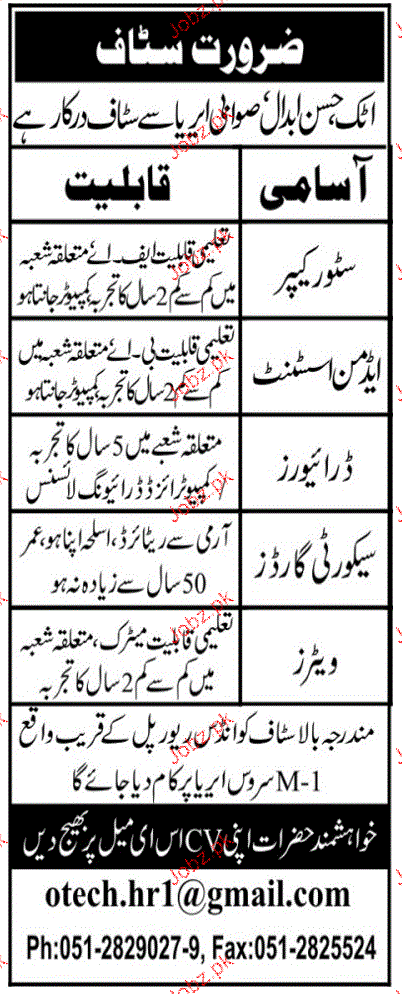 ضرورت سٹاف
اٹک، حسن ابدال، صوابی ایریا سے سٹاف درکار ہے
آسامی
قابلیت
سٹور کیپر
تعلیمی قابلیت ایف۔اے، متعلقہ شعبہ
میں کم سے کم 2 سال کا تجربہ، کمپیوٹر جانتا ہو
ایڈمن اسسٹنٹ
تعلیمی قابلیت بی۔اے، متعلقہ شعبہ میں
کم سے کم 2 سال کا تجربہ، کمپیوٹر جانتا ہو
ڈرائیورز
متعلقہ شعبے میں 5 سال کا تجربہ
/ کمپیوٹرائزڈ ڈرائیونگ لائسنس
سیکورٹی گارڈز
آرمی سے ریٹائرڈ، اسلحہ اپنا ہو، عمر
50 سال سے زیادہ نہ ہو
ویٹرز
تعلیمی قابلیت میٹرک، متعلقہ شعبہ
میں کم سے کم 2 سال کا تجربہ
مندرجہ بالا سٹاف کو انڈس ریور پل کے قریب واقع
M-1 سروس ایریا پر کام دیا جائے گا
خواہشمند حضرات اپنی CV اس ای میل پر بھیج دیں
otech.hr1@gmail.com
Ph:051-2829027-9, Fax:051-2825524
Jobz.pk